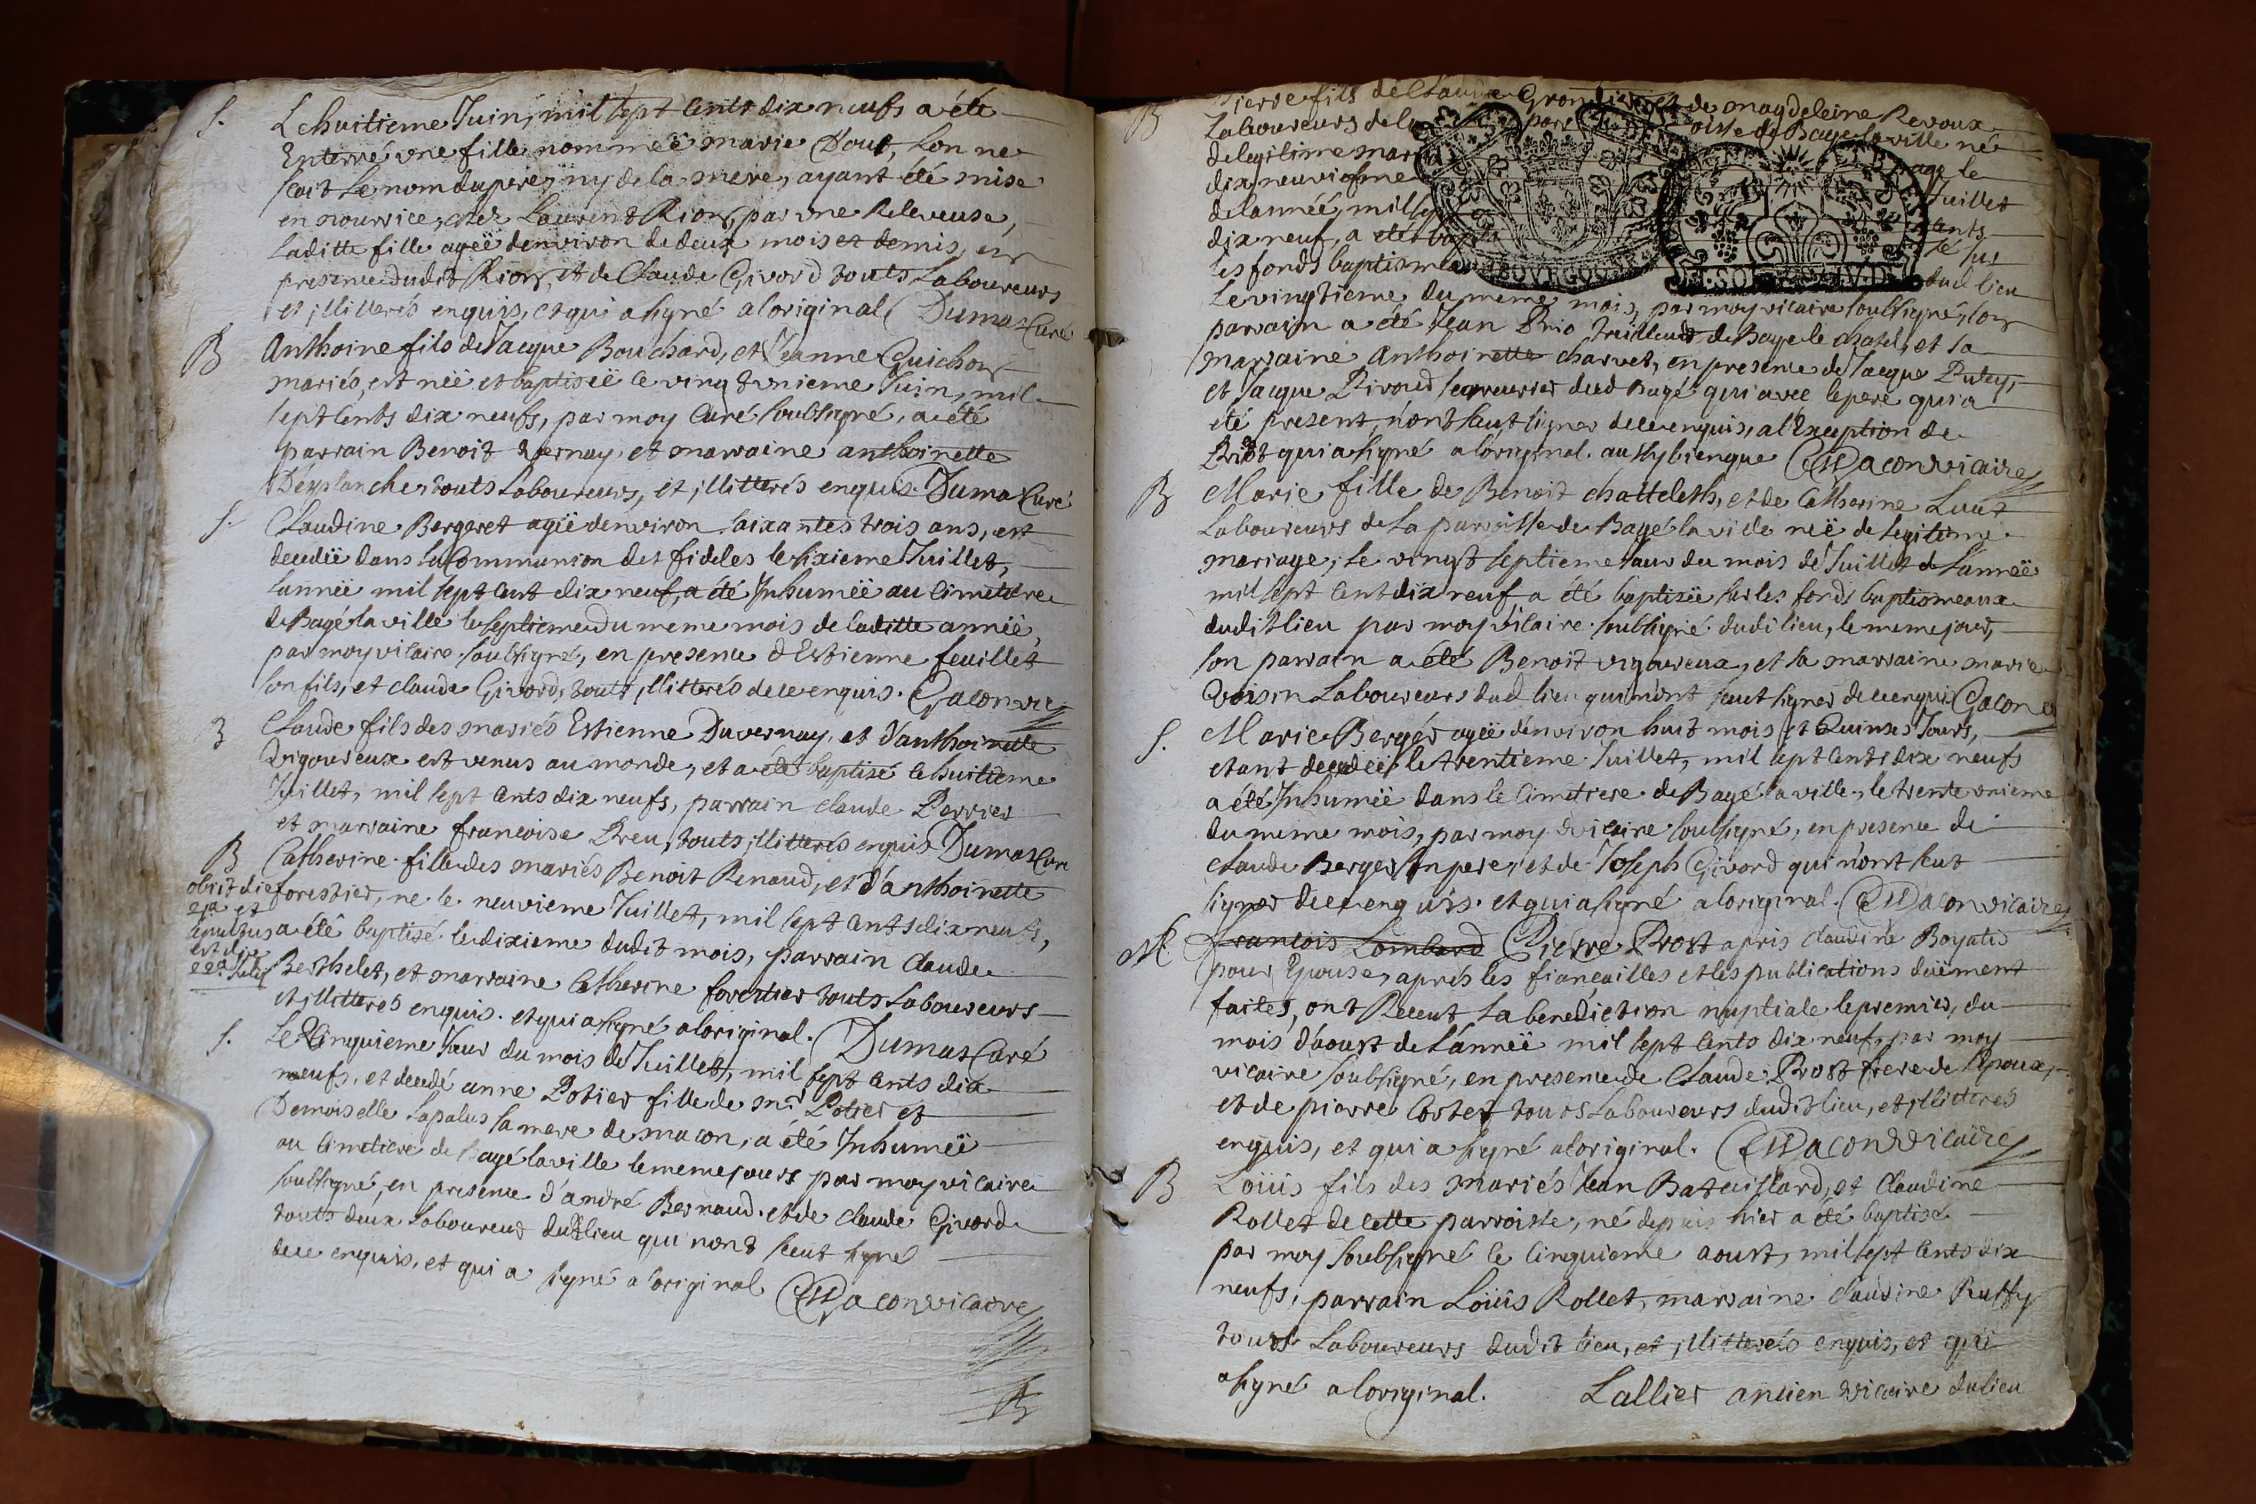 S. Le huitieme Juin, mil sept cents dix neufs a été
Enterré une fille nommeë marie D'out, l'on ne
scait le nom du pere, ny de la mere, ayant été mise
en nourrice, chez Laurent Rion, par une Releveuse,
laditte fille ageë denviron de deux mois et demis, en
presence dudit Rion, et de Claude Givord touts Laboureurs
et illitterés enquis, et qui a signé a loriginal Dumas Curé
B Anthoine fils de Jacque Bouchard, et Jeanne Guichon
mariés, est neë et baptiseë le vingt unieme Juin, mil
sept cents dix neufs, par moy Curé soubsigné, a été
parrain Benoit vernay, et marraine anthoinette
Désplanche, touts Laboureurs, et illitterés enquis Dumas Curé
S. Claudine Bergeret ageë denviron soixantes trois ans, est
decedeë dans la Communion des fideles le sixieme Juillet,
lanneë mil sept cent dix neuf, a été Inhumeë au Cimetiere
de Bagé la ville le septieme du meme mois de laditte anneë,
par moy vicaire soubsigné, en presence d'Estienne feuillet
son fils, et claude Givord, touts illitterés de ce enquis. Gacon vic
B Claude fils des mariés Estienne Duvernay, et d'anthoinette
Vigoureux est venus au monde, et a été baptisé le huitieme
Juillet, mil sept cents dix neufs, parrain claude Perrier
et marraine francoise Breu, touts illitterés enquis Dumas Curé
B Catherine fille des mariés Benoit Renaud, et d'anthoinette
obiit die
21a et
sepultus
est die
22a Julii
forestier, ne le neuvieme Juillet, mil sept cents dix neufs,
a été baptisé le dixieme dudit mois, parrain Claude
Berthelet, et marraine Catherine forestier touts Laboureurs
et illitterés enquis. et qui a signé a loriginal. Dumas Curé
S. Le Cinquieme Jour du mois de Juillet, mil sept cents dix
neufs, et decedé anne Potier fille de mr Potier et
Demoiselle Lapalus sa mere de macon, a été Inhumeë
au Cimetiere de Bagé la ville le meme jours par moy vicaire
soubsigné, en presence d'andré Bernaud. et de claude Givord
touts deux Laboureur dudt lieu qui nont sceut signé
de ce enquis, et qui a signé a loriginal Gacon vicaire
B Pierre fils de Claude et de magdeleine Revoux
Laboureurs de la paroisse de Bagé la ville né
de legitime mariage le
dix neuvieme Juillet
de lanneé, mil sept cents
dix neuf, a été baptisé sur
les fonds baptismeaux dud lieu
Le vingtieme du meme mois, par moy vicaire soubsigné, son
parrain a été Jean de Bage le chatel, et sa
marraine Anthoinette charvet, en presence de Jacque Putey,
et Jacque dud Bagé qui avec le pere qui a
été present, n'ont sceut signer de ce enquis, a l'Exception de
qui a signé a l'original. aussy bien que Gacon vicaire
B Marie fille de Benoit chatteleth, et de Catherine
Laboureurs de la parroisse de Bagé la ville neë de legitime
mariage, le vingt septieme jour du mois de Juillet de l'anneë
mil sept cent dix neuf a été baptiseë sur les fonds baptismeaux
dudit lieu par moy vicaire soubsigné dudi lieu, le meme jour,
son parrain a été Benoit vigoureux, et sa marraine marie
Voisin Laboureurs dud lieu qui n'ont sceut signer de ce enquis Gacon v
S. Marie Berger ageë denviron huit mois et Quinses Jours,
etant decedeë le trentieme Juillet, mil sept cents dix neufs
a été Inhumeë dans le Cimetiere de Bagé la ville, le trente unieme
du meme mois, par moy vicaire soubsigné, en presence de
claude Berger son pere, et de Joseph Givord qui n'ont sceut
signer de ce enquis. et qui a signé a loriginal. Gacon vicaire
M. francois Lombard Pierre Prost apris claudine Boyat
pour Epouse, aprés les fiancailles et les publications düement
faites, ont Receut la benediction nuptiale le premier, du
mois d'aoust de l'anneë mil sept cents dix neufs par moy
vicaire soubsigné, en presence de Claude Prost frere de lépoux,
et de pierre Coster touts Laboureurs dudit lieu, et illitteres
enquis, et qui a signé a loriginal. Gacon vicaire
B Loüis fils des mariés Jean Bataillard, et Claudine
Rollet de cette parroisse, né depuis hier a été baptisé
par moy soubsigné le Cinquieme aoust, mil sept cents dix
neufs, parrain Loüis Rollet, marraine claudine Ruffy
touts Laboureurs dudit lieu, et illitterés enquis, et qui
a signé a loriginal. Lallier ancien vicaire du lieu